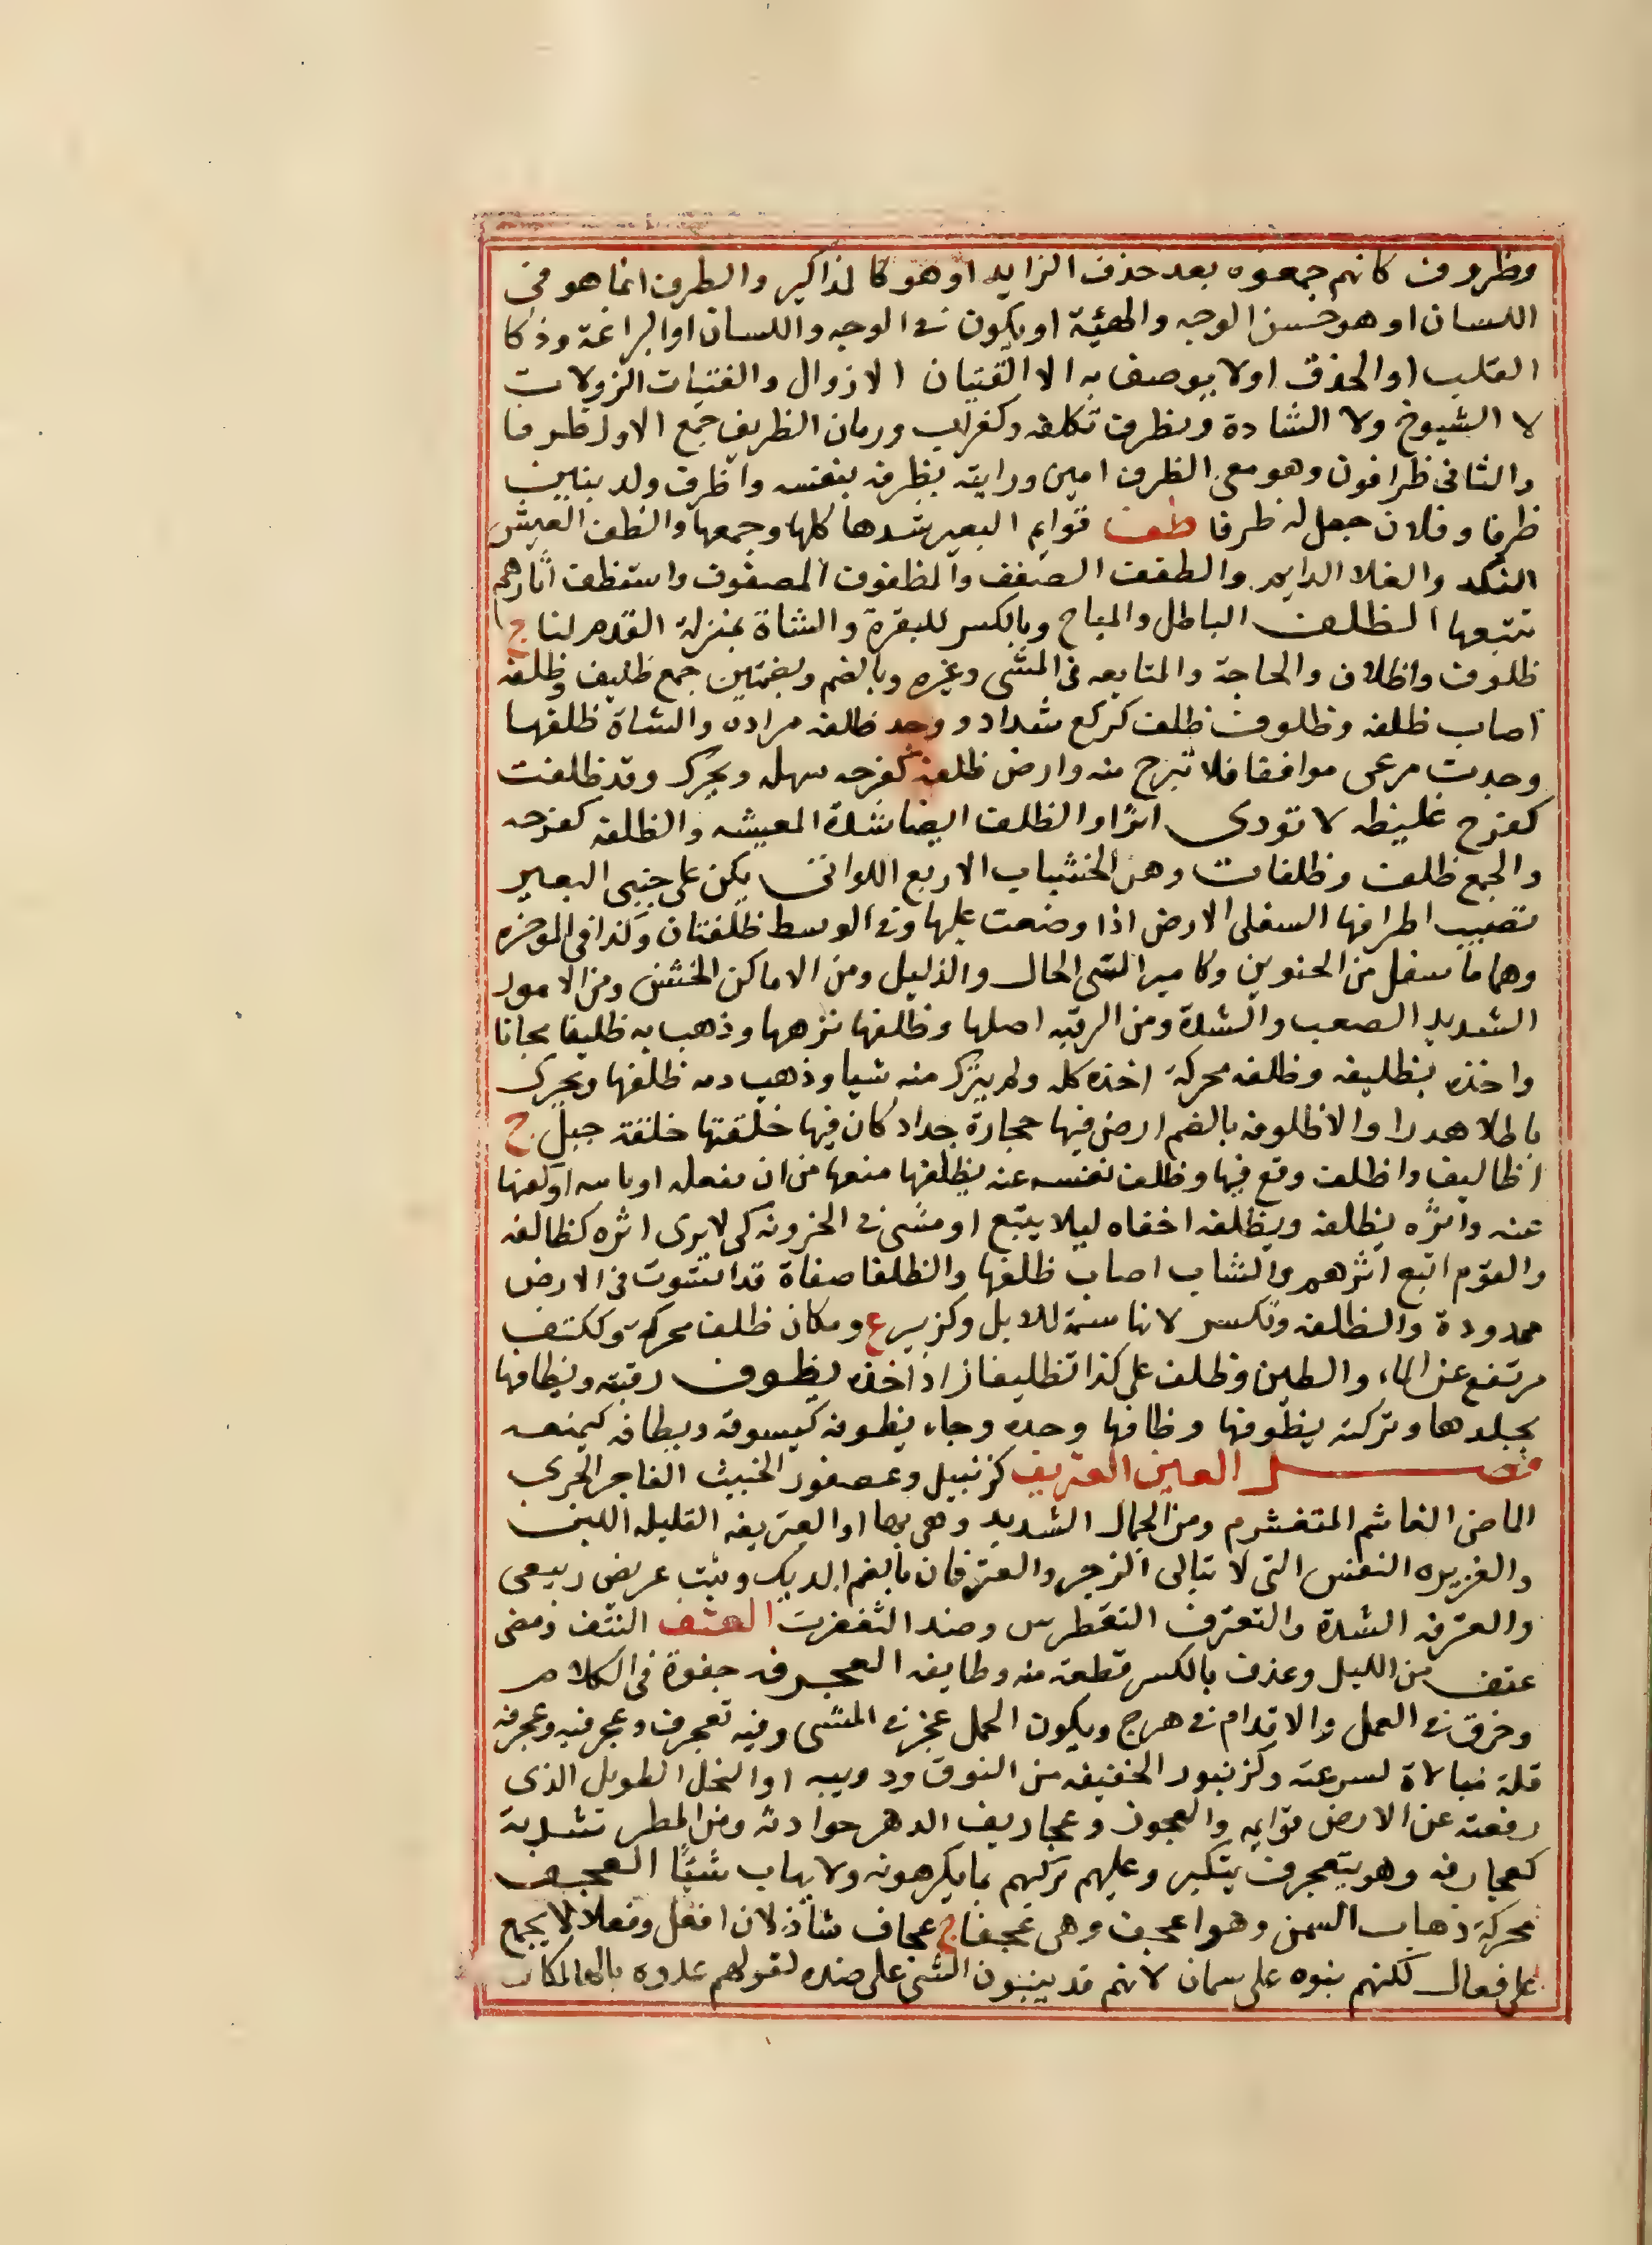 وظروف كانهم جمعوه بعد حذف الزايد او هو كالمذاكير والظرف انما هو في
اللسان او هو حسن الوجه والهيئة او يكون في الوجه واللسان او البراغة وذكا
القلب او الحذق او لا يوصف به الا الفتيان الازوال والفتيات الزولات
لا الشيوخ ولا السادة وتظرف تكلفه وكغراب ورمان الظريف جمع الاول ظرفا
والثاني ظرافون وهو معى الظرف امين ورايته بظرفه بنفسه واظرف ولد بنين
ظرفا وفلان جعل له ظرفا ظف قوايم البعير شدها كلها وجمعها والظف العيش
النكد والغلا الدايم والظفف الضفف والمظفوف المصفوف واستظف اثارهم
تتبعها الظلف الباطل والمباح وبالكسر للبقرة والشاة بمنزلة القدم لنا ج
ظلوف واظلاف والحاجة والمتابعه في المشى وغيره وبالضم وبضمتين جمع ظليف وظلفه
اصاب ظلفه وظلوف ظلف كركع شداد ووجد ظلفه مراده والشاة ظلفها
وجدت مرعى موافقا فلا تبرح منه وارض ظلفه كفرحه سهله ويحرك وقد ظلفت
كفرح غليظه لا تودى اثرا والظلف ايضا شدة المعيشه والظلفه كفرحه
والجمع ظلف وظلفات وهن الخشبات الاربع اللواتى يكن على جنبى البعير
تصيب اطرافها السفلى الارض اذا وضعت عليها وفى الوسط ظلفتان وكذا فى الموخره
وهما ما سفل من الحنوين وكامير السى الحال والذليل ومن الاماكن الخشن ومن الامور
الشديد الصعب والشدة ومن الرقبه اصلها وظلفها نزهها وذهب به ظليفا مجانا
واخذه بظليفه وظلفه محركة اخذه كله ولم يترك منه شيا وذهب دمه ظلفها ويحرك
باطلا هدرا والاظلوفه بالضم ارض فيها حجارة حداد كان فيها خلقتها خلقة جبل ج
اظاليف واظلف وقع فيها وظلف نفسه عنه يظلفها منعها من ان تفعله او تاته او كفها
عنه واثره يظلفه ويظلفه اخفاه ليلا يتبع او مشى في الحزونه كى لا يرى اثره كظالفه
والقوم اتبع اثرهم والشاب اصاب ظلفها والظلفا صفاة قد استوت في الارض
ممدودة والظلفه وتكسر لانا سمة للابل وكزبير ع ومكان ظلف محركة وككتف
مرتفع عن الماء والطين وظلف على كذا تظليفا زاد اخذه بظوف رقبته وبظافها
بجلدها وتركته بظوفها وظافها وحده وجاء يظوفه كيسوقه ويظافه كيمنعه
فصل العين العتريف كزنبيل وعصفور الخبيث الفاجر الجرى
الماضى الغاشم المتغشرم ومن الجمال الشديد وهى بها او العتريفه القليله اللبن
والغزيره النفس التى لا تبالى الزجر والعترفان بالضم الديك ونبت عريض ربيعى
والعترفه الشدة والتعترف التغطرس وضد التغفرت العتف النتف ومضى
عتف من الليل وعدف بالكسر قطعة منه وطايفه العجرفه جفوة فى الكلام
وخرق في العمل والاقدام في هرج ويكون الجمل عجز في المشى وفيه تعجرف وعجرفيه وعجرفه
قلة مبالاة لسرعته وكزنبور الخفيفه من النوق ودويبه او النحل الطويل الذى
رفعته عن الارض قوايمه والعجوز وعجاريف الدهر حوادثه ومن المطر شدته
كعجارفه وهو يتعجرف يتكبر وعليهم يركبهم بما يكرهونه ولا يهاب شيئًا العجف
محركة ذهاب السمن وهو اعجف وهى عجفا ج عجاف شاذ لان افعل وفعلاء لا يجمع
على فعال لكنهم بنوه على سمان لانهم قد يبنون الشى على ضده لقولهم عدوه بالها لمكان